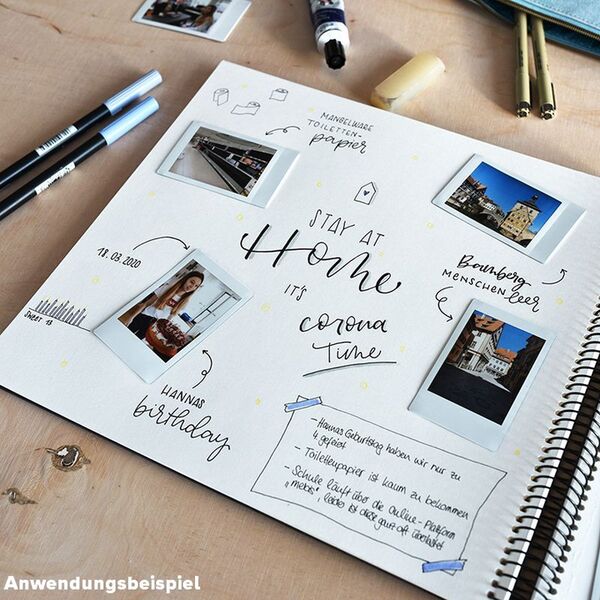 MANGELWARE
TOILETTEN-
papier
STAY AT
Home
IT'S
corona
Time
18.03.2020
SWEET 18
HANNAS
birthday
Bamberg
MENSCHENleer
- Hannas Geburtstag haben wir nur zu
4. gefeiert
- Toilettenpapier ist kaum zu bekommen
- Schule läuft über die Online-Plattform
„mebis", leider ist diese ganz oft überlastet
Anwendungsbeispiel